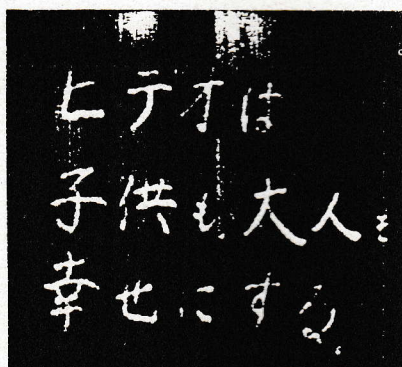 ヒデオは
子供も大人も
幸せにする。